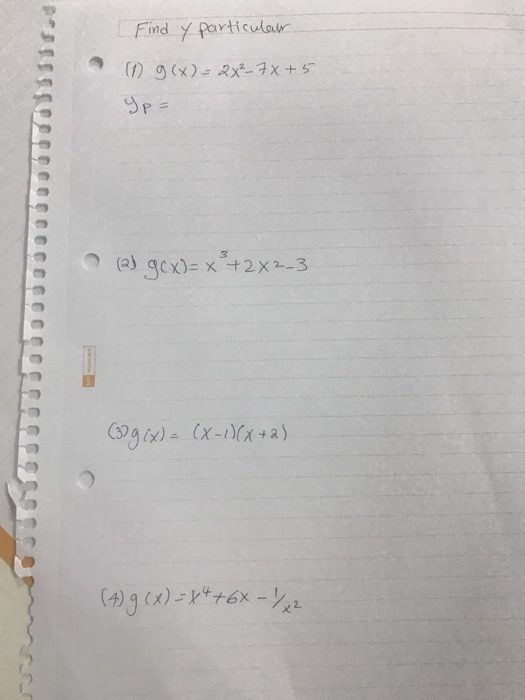 Find y particular
(1) g(x) = 2x² - 7x + 5
yp =
(2) g(x) = x³ + 2x2 - 3
(3) g(x) = (x-1)(x+2)
(4) g(x) = x⁴ + 6x - 1/x2